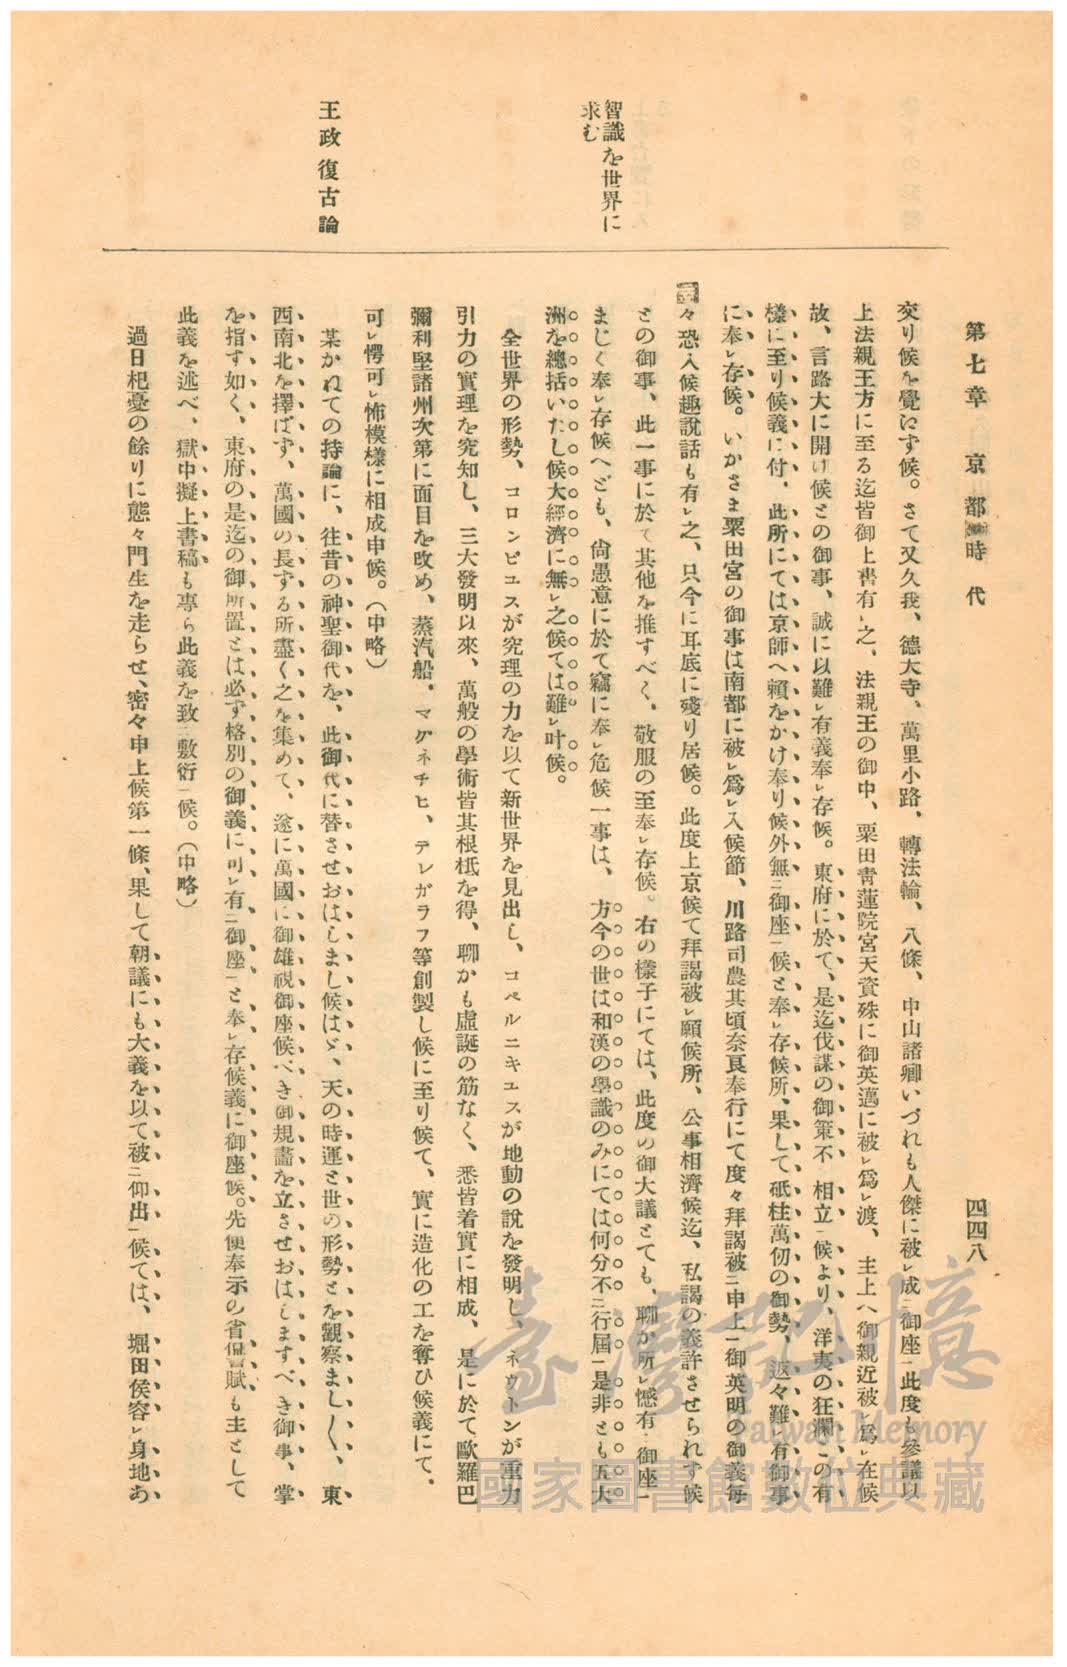 第七章 京都時代
四四八
智識を世界に
求む
王政復古論
交り候を覺にず候。さて又久我、德大寺、萬里小路、轉法輪、八條、中山諸卿いづれも人傑に被レ成ニ御座一此度も參議以
上法親王方に至る迄皆御上書有レ之、法親王の御中、粟田靑蓮院宮天資殊に御英邁に被レ爲レ渡、主上へ御親近被レ爲レ在候
故、言路大に開け候との御事、誠に以難レ有義奉レ存候。東府に於て、是迄伐謀の御策不二相立一候より、洋夷の狂瀾この有
樣に至り候義に付、此所にては京師へ賴をかけ奉り候外無ニ御座一候と奉レ存候所、果して砥柱萬仞の御勢、返々難レ有御事
に奉レ存候。いかさま粟田宮の御事は南都に被レ爲レ入候節、川路司農其頃奈良奉行にて度々拜謁被ニ申上一御英明の御義每
々恐入候趣說話も有レ之、只今に耳底に殘り居候。此度上京候て拜謁被レ願候所、公事相濟候迄、私謁の義許させられず候
との御事、此一事に於て其他を推すべく、敬服の至奉レ存候。右の樣子にては、此度の御大議とても、聊か所レ憾有ニ御座一
まじく奉レ存候へども、尙愚意に於て竊に奉レ危候一事は、方今の世は和漢の學識のみにては何分不ニ行屆一是非とも五大
洲を總括いたし候大經濟に無レ之候ては難レ叶候。
全世界の形勢、コロンビユスが究理の力を以て新世界を見出し、コペルニキユスが地動の說を發明し、ネウトンが重力
引力の實理を究知し、三大發明以來、萬般の學術皆其根柢を得、聊かも虛誕の筋なく、悉皆着實に相成、是に於て歐羅巴
彌利堅諸州次第に面目を改め、蒸汽船、マグネチヒ、テレガラフ等創製し候に至り候て、實に造化の工を奪ひ候義にて、
可レ愕可レ怖模樣に相成申候。（中略）
某かねての持論に、往昔の神聖御代を、此御代に替させおはしまし候はゞ、天の時運と世の形勢とを觀察まし〳〵、東
西南北を擇ばず、萬國の長ずる所盡く之を集めて、遂に萬國に御雄視御座候べき御規畵を立させおはしますべき御事、掌
を指す如く、東府の是迄の御所置とは必ず格別の御義に可レ有ニ御座一と奉レ存候義に御座候。先便奉示の省諐賦も主として
此義を述べ、獄中擬上書稿も專ら此義を致ニ敷衍一候。（中略）
過日杞憂の餘りに態々門生を走らせ、密々申上候第一條、果して朝議にも大義を以て被ニ仰出一候ては、堀田侯容レ身地あ
臺灣記憶
Taiwan Memory
國家圖書館數位典藏